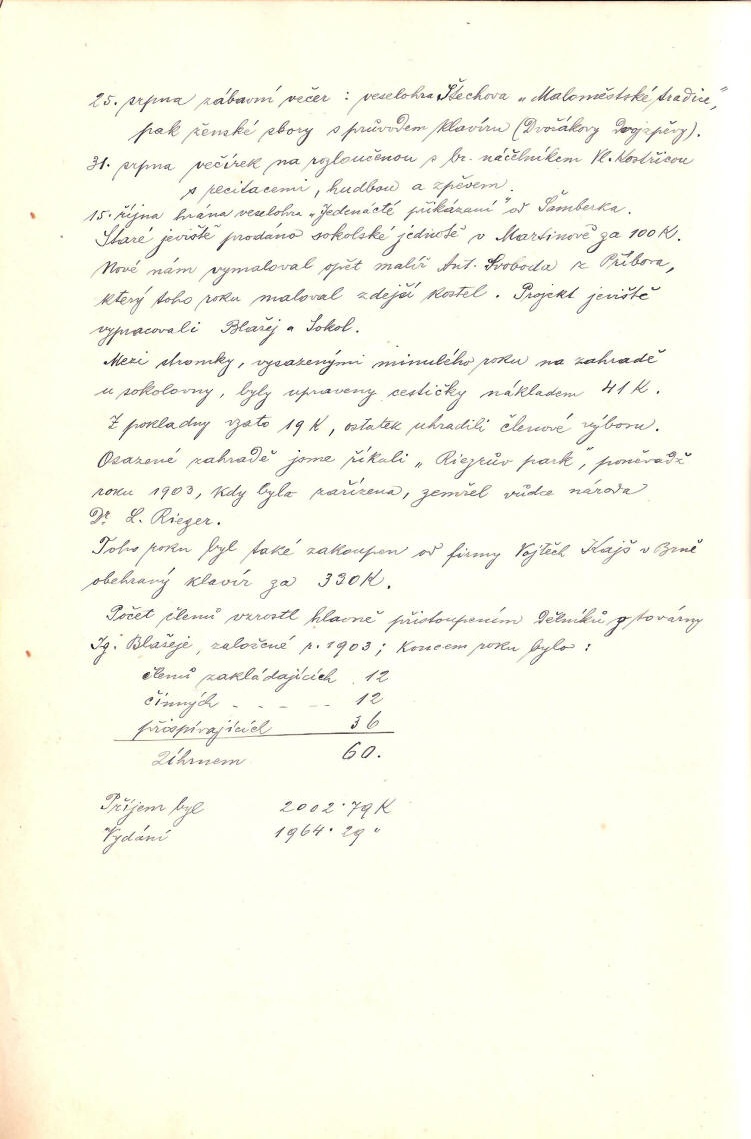 25. srpna zábavní večer : veselohra Štechova „Maloměstské tradice,"
pak ženské sbory s průvodem klavíru (Dvořákovy Dvojzpěvy).
31. srpna večírek na rozloučenou s br. náčelníkem Vl. Kostřicou
s recitacemi, hudbou a zpěvem.
15. října hrána veselohra „Jedenácté přikázaní" od Šamberka.
Staré jeviště prodáno sokolské jednotě v Martinově za 100 K.
Nové nám vymaloval opět malíř Ant. Svoboda z Příbora,
který toho roku maloval zdejší kostel. Projekt jeviště
vypracovali Blažej a Sokol.
Mezi stromky, vysazenými minulého roku na zahradě
u sokolovny, byly upraveny cestičky nákladem 41 K.
Z pokladny vzato 19 K, ostatek uhradili členové výboru.
Osazené zahradě jsme říkali „Riegrův park", poněvadž
roku 1903, kdy byla zařízena, zemřel vůdce národa
Dr. L. Rieger.
Toho roku byl také zakoupen od firmy Vojtěch Kajš v Brně
obehraný klavír za 330 K.
Počet členů vzrostl hlavně přistoupením dělníků z továrny
Ig. Blažeje, založené r. 1903; koncem roku bylo :
členů zakládajících 12
činných - - - - - 12
přispívajících 36
Úhrnem 60.
Příjem byl 2002·79 K
Vydání 1964·29 "